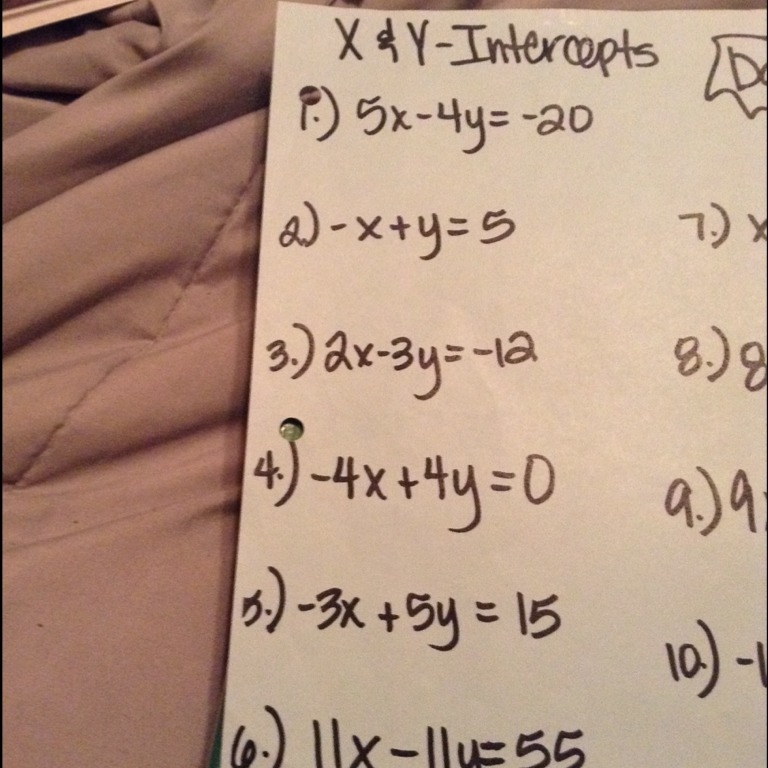 X & Y-Intercepts
1.) 5x-4y=-20
2.) -x+y=5
3.) 2x-3y=-12
4.) -4x+4y=0
5.) -3x+5y=15
6.) 11x-11y=55
7.) x
8.) 8
9.) 9
10.) -1